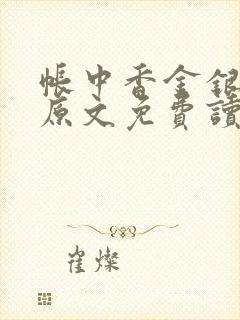 帳中香金銀
原文免費讀
崔燦